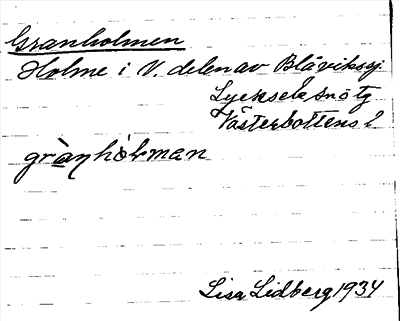 Granholmen
Holme i V. delen av Blåviksj.
Lycksele snötg
Västerbottens l
grànhòlman
Lisa Lidberg 1934